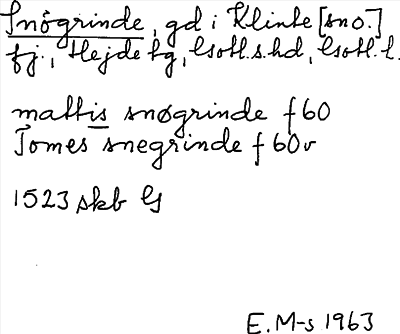 Snögrinde, gd i Klinte [sno.]
fj., Hejde kg, Gotl.s.hd, Gotl.l.
mattis snøgrinde f 60
Jomes snegrinde f 60v
1523 skb G
E.M-s 1963